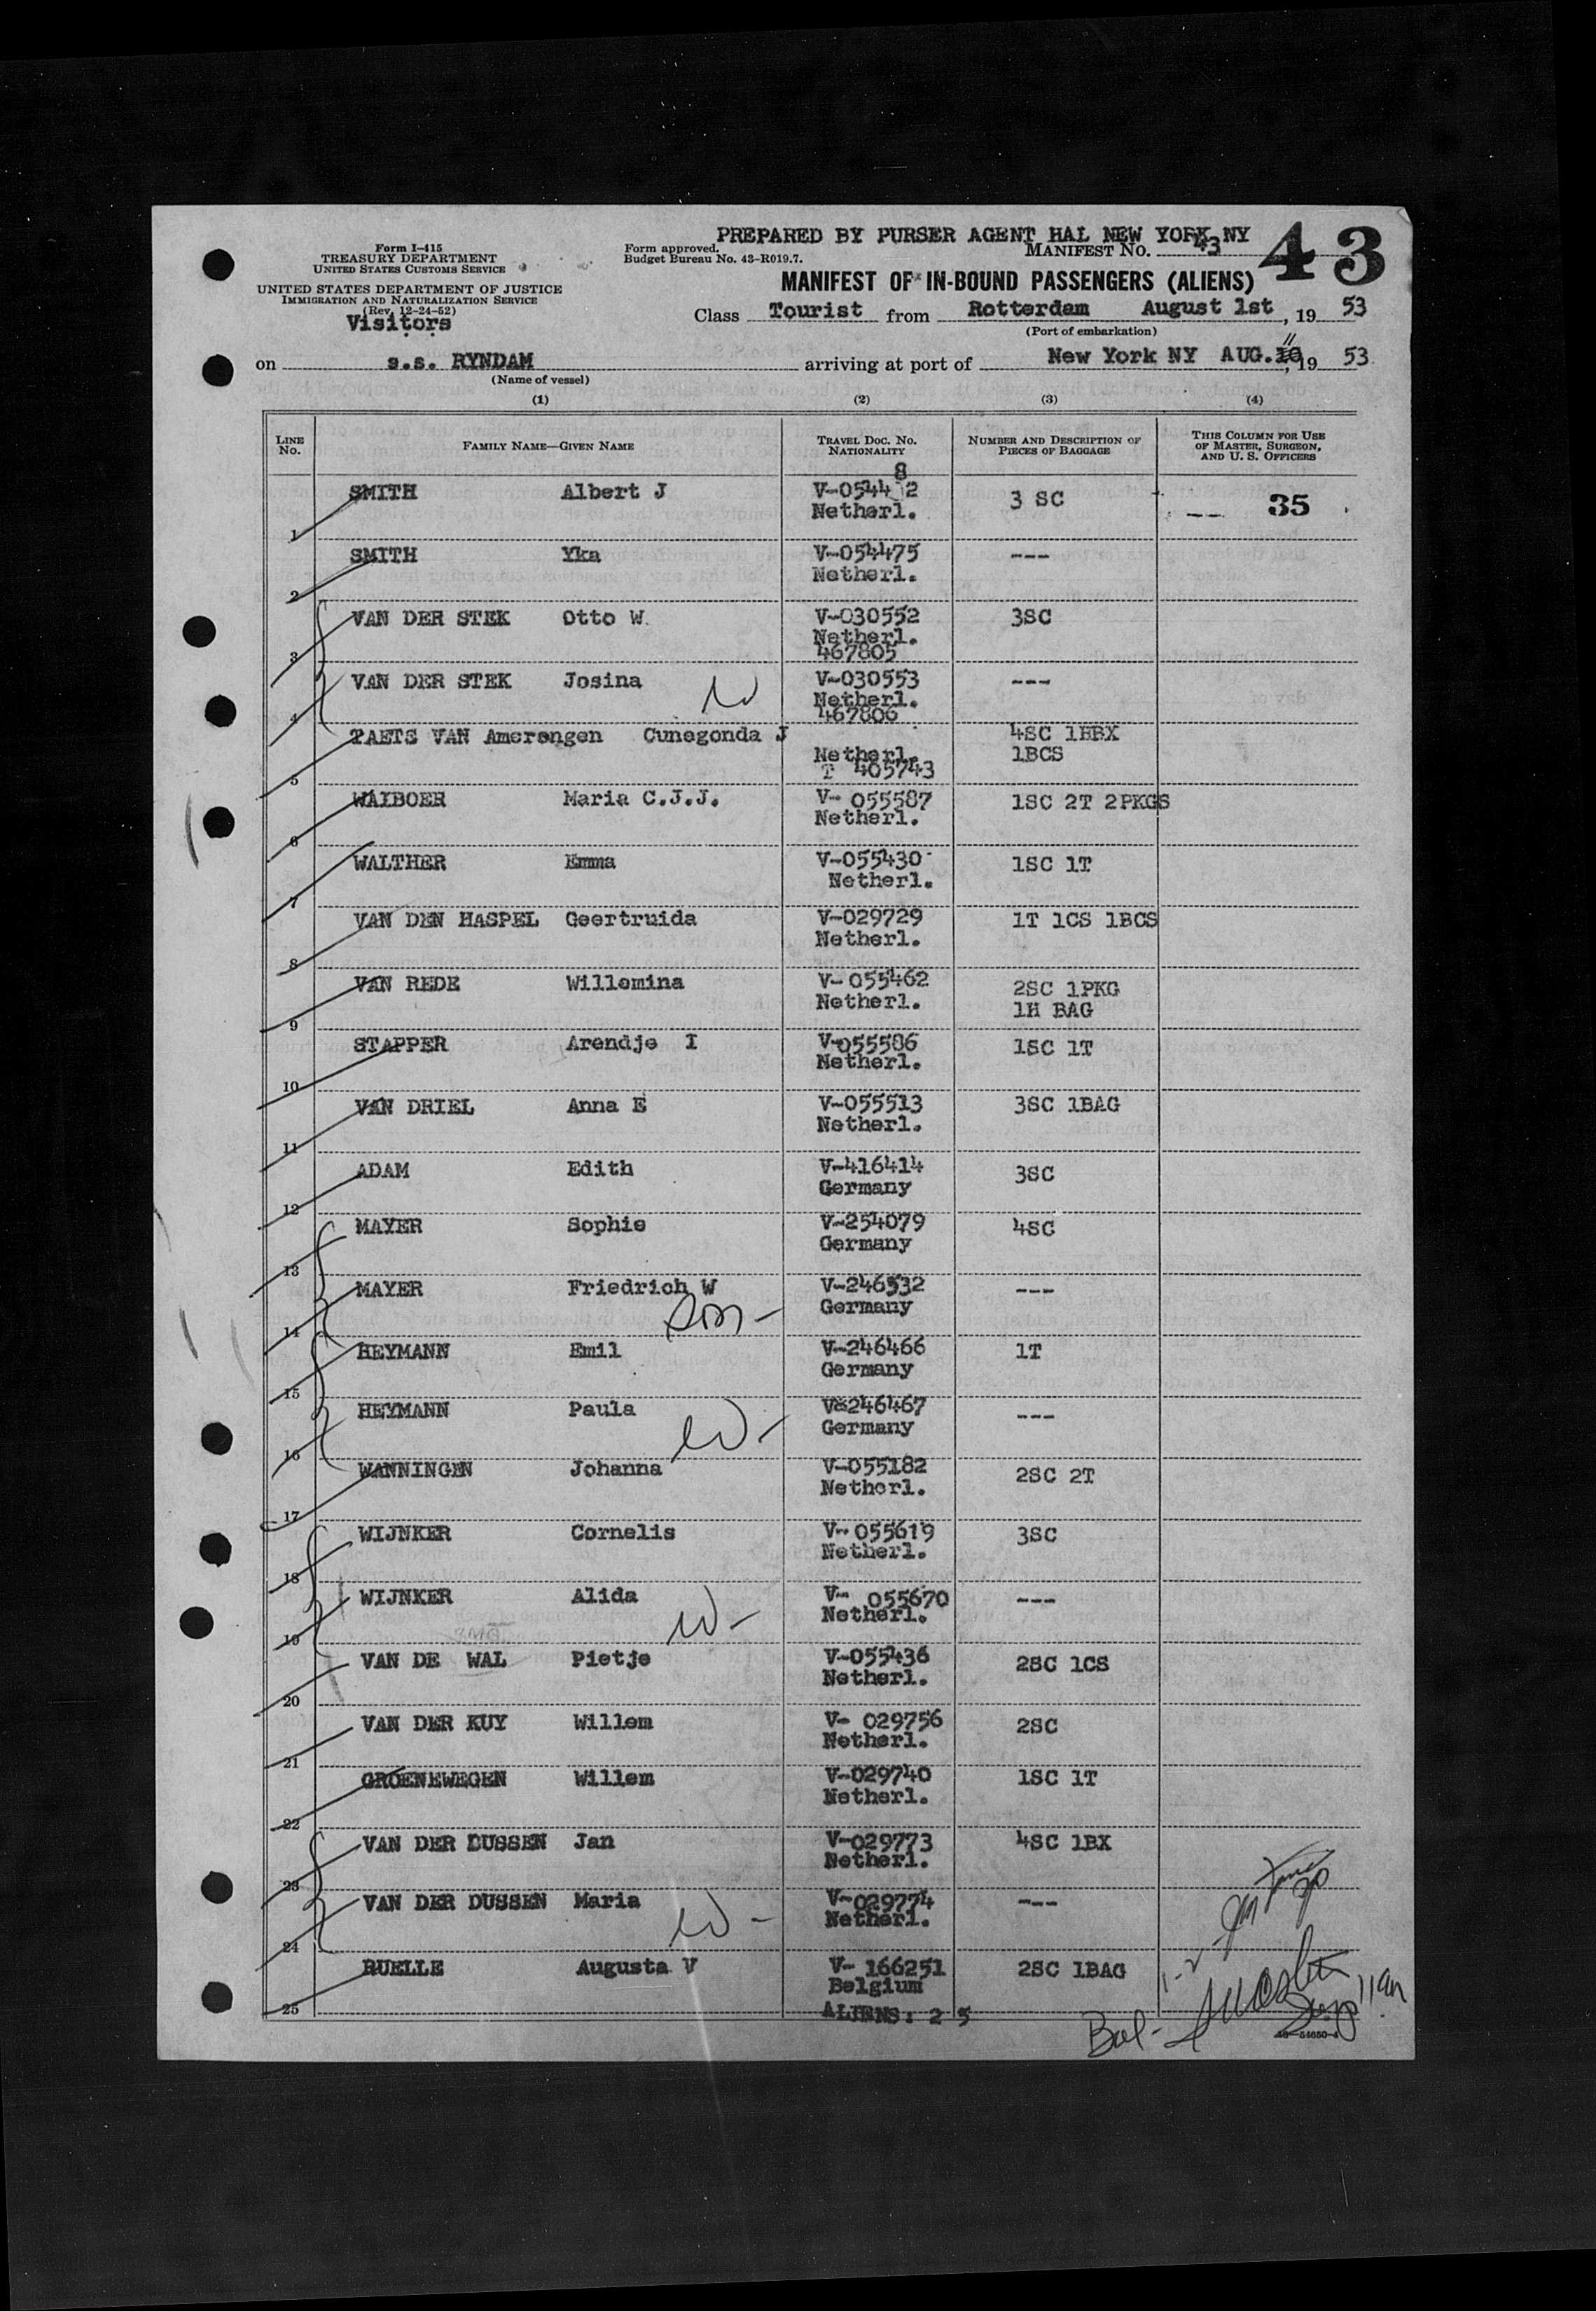 PREPARED BY PURSER AGENT HAL NEW YORK NY
Form I-415
TREASURY DEPARTMENT
UNITED STATES CUSTOMS SERVICE
UNITED STATES DEPARTMENT OF JUSTICE
IMMIGRATION AND NATURALIZATION SERVICE
(Rev. 12-24-52)
Visitors
Form approved.
Budget Bureau No. 43-R019.7.
MANIFEST NO. 43
43
MANIFEST OF IN-BOUND PASSENGERS (ALIENS)
Class Tourist from Rotterdam August 1st, 19 53
(Port of embarkation)
on s.s. RYNDAM arriving at port of New York NY AUG. 11, 19 53
(Name of vessel)
(1) (2) (3) (4)
LINE NO. FAMILY NAME—GIVEN NAME TRAVEL DOC. NO. NATIONALITY NUMBER AND DESCRIPTION OF PIECES OF BAGGAGE THIS COLUMN FOR USE OF MASTER, SURGEON, AND U. S. OFFICERS
8
1 SMITH Albert J V-0544 2 3 SC -- 35
Netherl.
2 SMITH Yka V-054475 ---
Netherl.
3 VAN DER STEK Otto W. V-030552 3SC
Netherl.
467805
4 VAN DER STEK Josina W V-030553 ---
Netherl.
467806
5 PAETS VAN Amerongen Cunegonda J 4SC 1HBX
Netherl. 1BCS
T 405743
6 WAIBOER Maria C.J.J. V- 055587 1SC 2T 2PKGS
Netherl.
7 WALTHER Emma V-055430 1SC 1T
Netherl.
8 VAN DEN HASPEL Geertruida V-029729 1T 1CS 1BCS
Netherl.
9 VAN REDE Willemina V- 055462 2SC 1PKG
Netherl. 1H BAG
10 STAPPER Arendje I V-055586 1SC 1T
Netherl.
11 VAN DRIEL Anna E V-055513 3SC 1BAG
Netherl.
12 ADAM Edith V-416414 3SC
Germany
13 MAYER Sophie V-254079 4SC
Germany
14 MAYER Friedrich W V-246532 ---
Son - Germany
15 HEYMANN Emil V-246466 1T
Germany
16 HEYMANN Paula V-246467 ---
W - Germany
17 WANNINGEN Johanna V-055182 2SC 2T
Netherl.
18 WIJNKER Cornelis V- 055619 3SC
Netherl.
19 WIJNKER Alida V- 055670 ---
W - Netherl.
20 VAN DE WAL Pietje V-055436 2SC 1CS
Netherl.
21 VAN DER KUY Willem V- 029756 2SC
Netherl.
22 GROENEWEGEN Willem V-029740 1SC 1T
Netherl.
23 VAN DER DUSSEN Jan V-029773 4SC 1BX
Netherl.
24 VAN DER DUSSEN Maria V-029774 ---
W - Netherl.
25 RUELLE Augusta V V- 166251 2SC 1BAG
Belgium
ALIENS: 2 5
1-2-
Bal-
16—54650-4